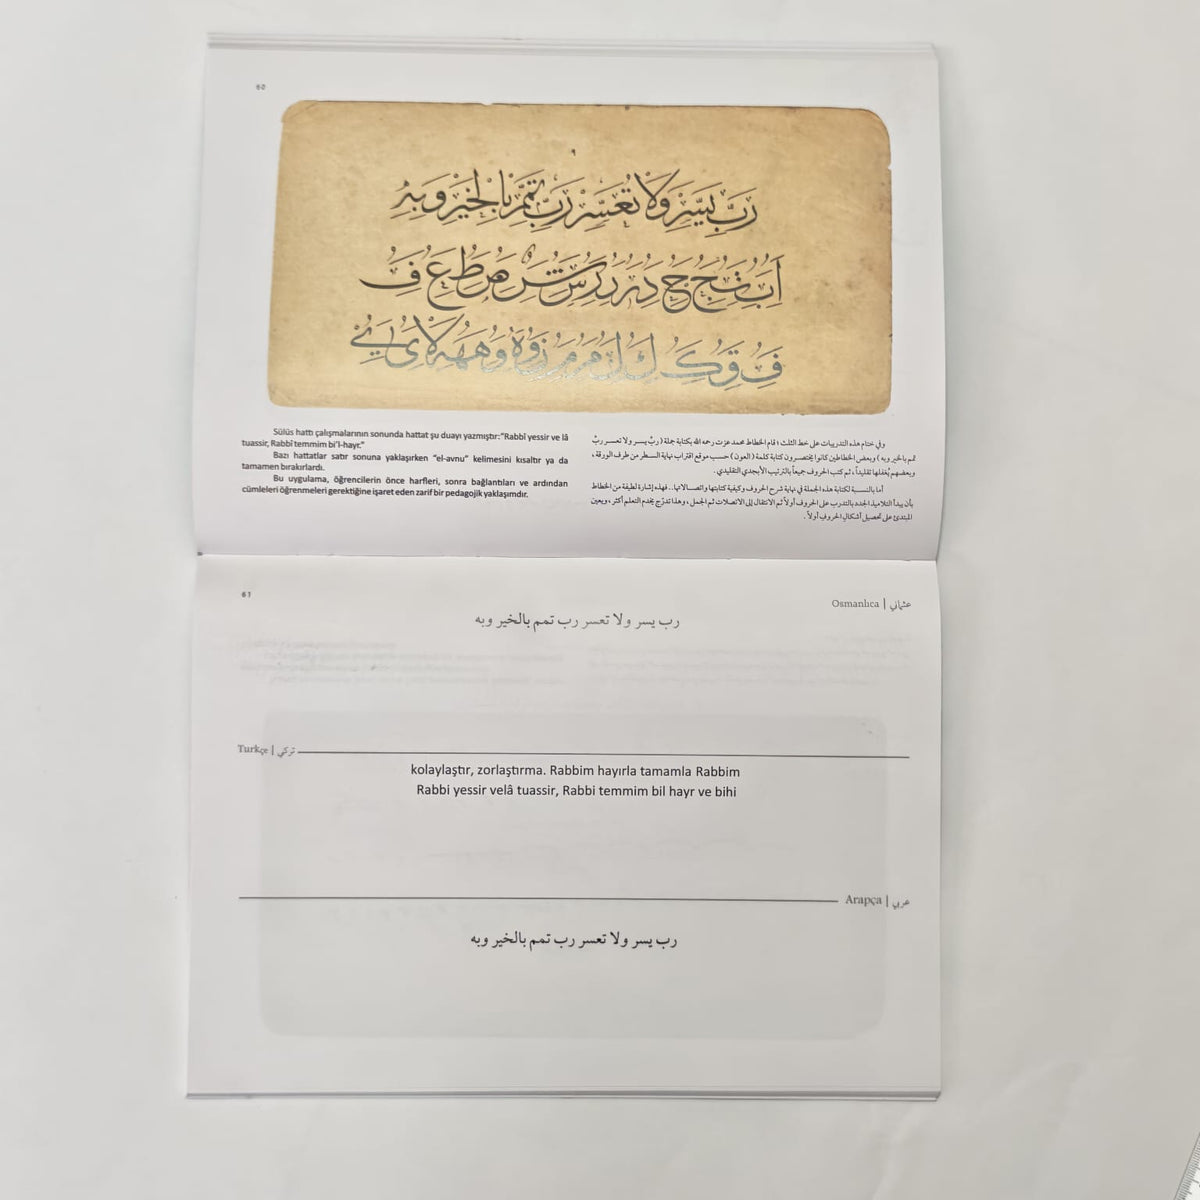 60
رَبِّ يَسِّرْ وَلَا تُعَسِّرْ رَبِّ تَمِّمْ بِالْخَيْرِ وَبِهِ
Sülüs hattı çalışmalarının sonunda hattat şu duayı yazmıştır:"Rabbî yessir ve lâ
tuassir, Rabbî temmim bi'l-hayr."
Bazı hattatlar satır sonuna yaklaşırken "el-avnu" kelimesini kısaltır ya da
tamamen bırakırlardı.
Bu uygulama, öğrencilerin önce harfleri, sonra bağlantıları ve ardından
cümleleri öğrenmeleri gerektiğine işaret eden zarif bir pedagojik yaklaşımdır.
وفي ختام هذه التدريبات على خط الثلث ؛ قام الخطاط محمد عزت رحمه الله بكتابة جملة ( ربِّ يسر ولا تعسر ربِّ
تمم بالخير وبه ) وبعض الخطاطين كانوا يختصرون كتابة كلمة ( العون ) حسب موقع اقتراب نهاية السطر من طرف الورقة ،
وبعضهم يُغفلها تقليداً ، ثم كتب الحروف جميعاً بالترتيب الأبجدي التقليدي .
أما بالنسبة لكتابة هذه الجملة في نهاية شرح الحروف وكيفية كتابتها واتصالاتها.. فهذه إشارة لطيفة من الخطاط
بأن يبدأ التلاميذ الجدد بالتدرب على الحروف أولاً ثم الانتقال إلى الاتصلات ثم الجمل ، وهذا تدرّج يخدم التعلم أكثر ، ويعين
المبتدئ على تحصيل أشكال الحروف أولاً .
61
Osmanlıca | عثماني
رب يسر ولا تعسر رب تمم بالخير وبه
Turkçe | تركي
kolaylaştır, zorlaştırma. Rabbim hayırla tamamla Rabbim
Rabbi yessir velâ tuassir, Rabbi temmim bil hayr ve bihi
Arapça | عربي
رب يسر ولا تعسر رب تمم بالخير وبه